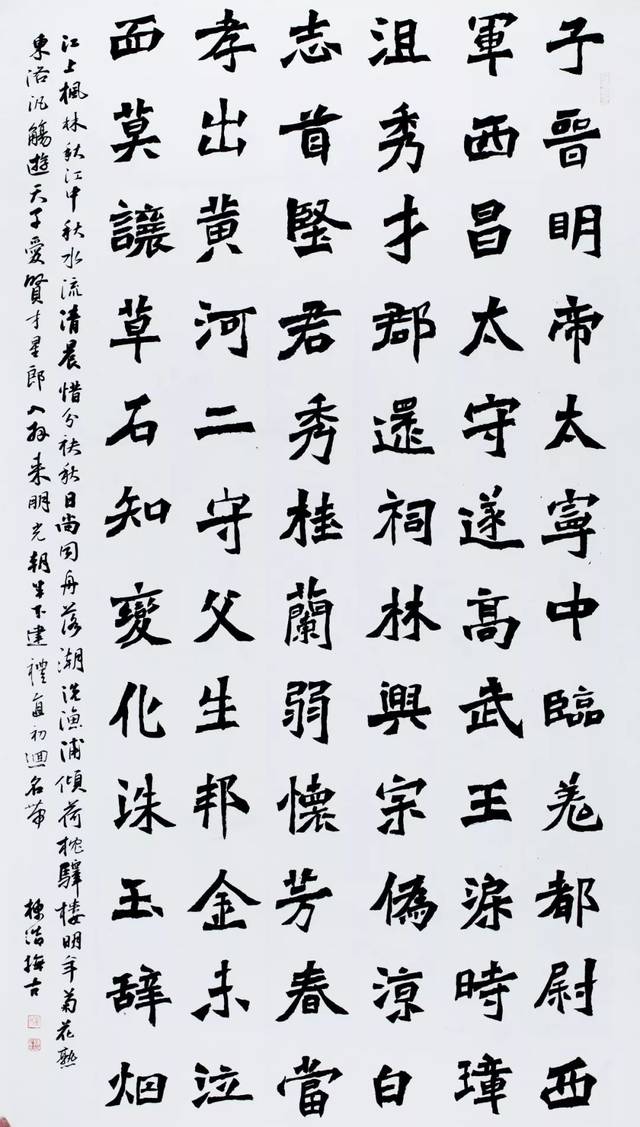 子晉明帝太寧中臨羌都尉西
軍西昌太守遂高武王淚時璋
沮秀才郡還祠林興宗偽涼白
志首堅君秀桂蘭弱懷芳春當
孝出黃河二守父生邦金未泣
面莫讓草石知變化洙玉辭烟
江上楓林秋江中秋水流清晨惜分袂秋日尚同舟落潮洗漁浦傾荷枕驛樓明年菊花熟
東洛汎觴遊天子愛賢才星郎入拜來明光朝半下建禮直初迴名帶